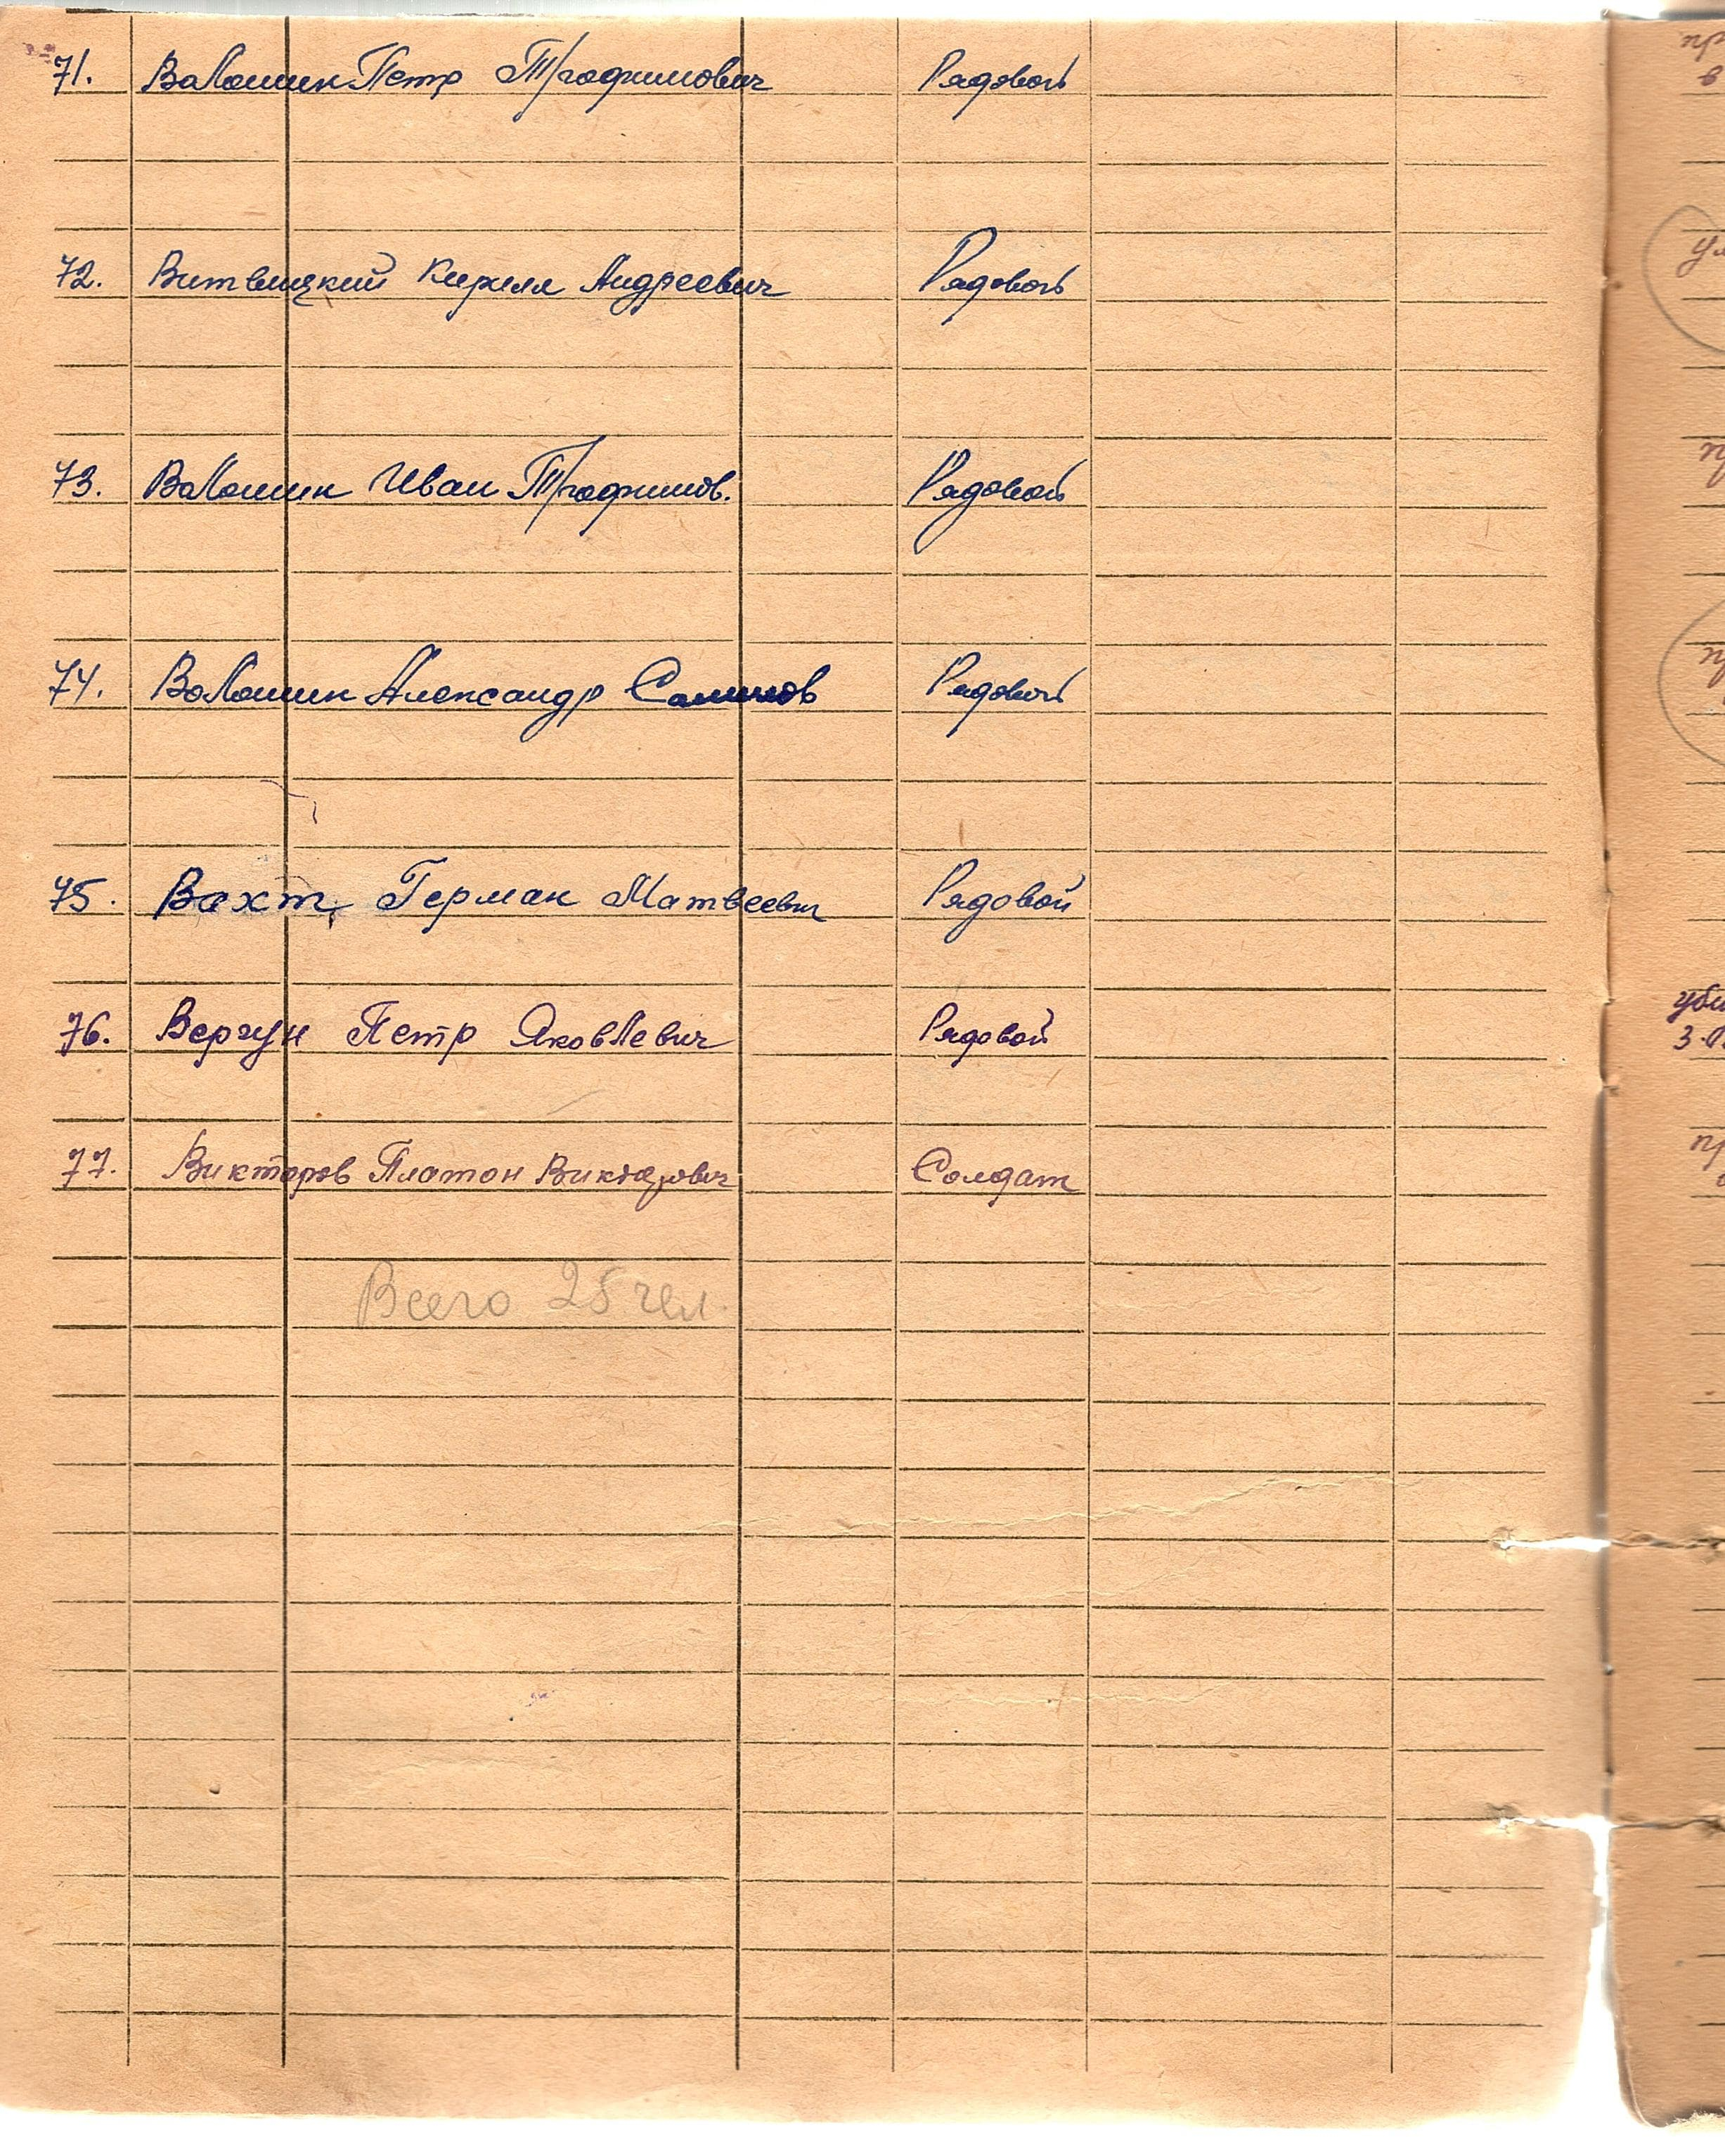 71. Валошин Петр Трофимович Рядовой
72. Витвицкий Кирилл Андреевич Рядовой
73. Валошин Иван Трофимов. Рядовой
74. Валошин Александр Рядовой
75. Вахт Герман Матвеевич Рядовой
76. Вергун Петр Яковлевич Рядовой
77. Викторов Платон Викторович Солдат
Всего чел.